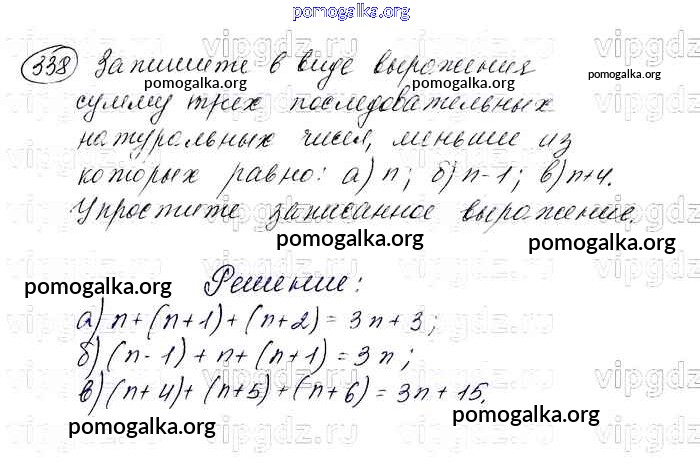 pomogalka.org
338 Запишите в виде выражения
pomogalka.org pomogalka.org
сумму трех последовательных
натуральных чисел, меньшее из
которых равно: а) n; б) n-1; в) n+4.
Упростите записанное выражение.
pomogalka.org pomogalka.org
Решение:
pomogalka.org pomogalka.org
а) n+(n+1)+(n+2)=3n+3;
б) (n-1)+n+(n+1)=3n;
в) (n+4)+(n+5)+(n+6)=3n+15.
pomogalka.org pomogalka.org
vipgdz.ru